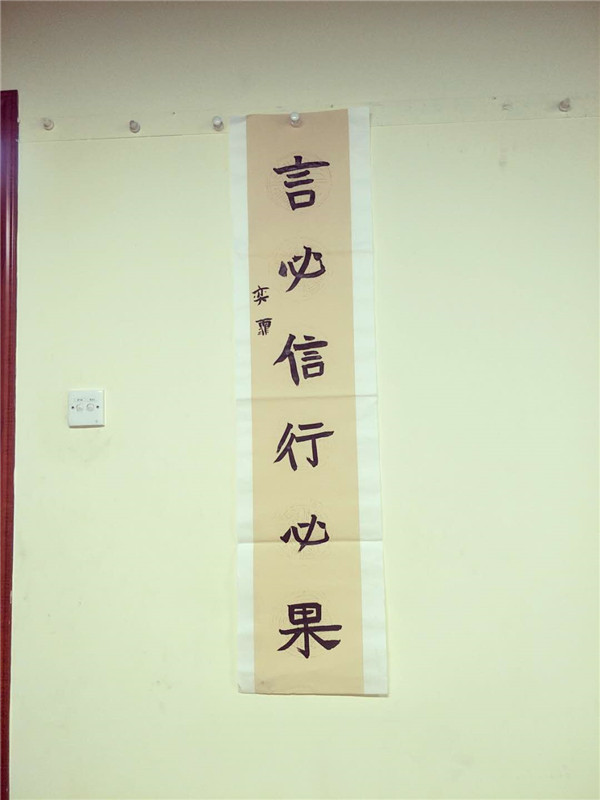 言必信行必果
奕霏